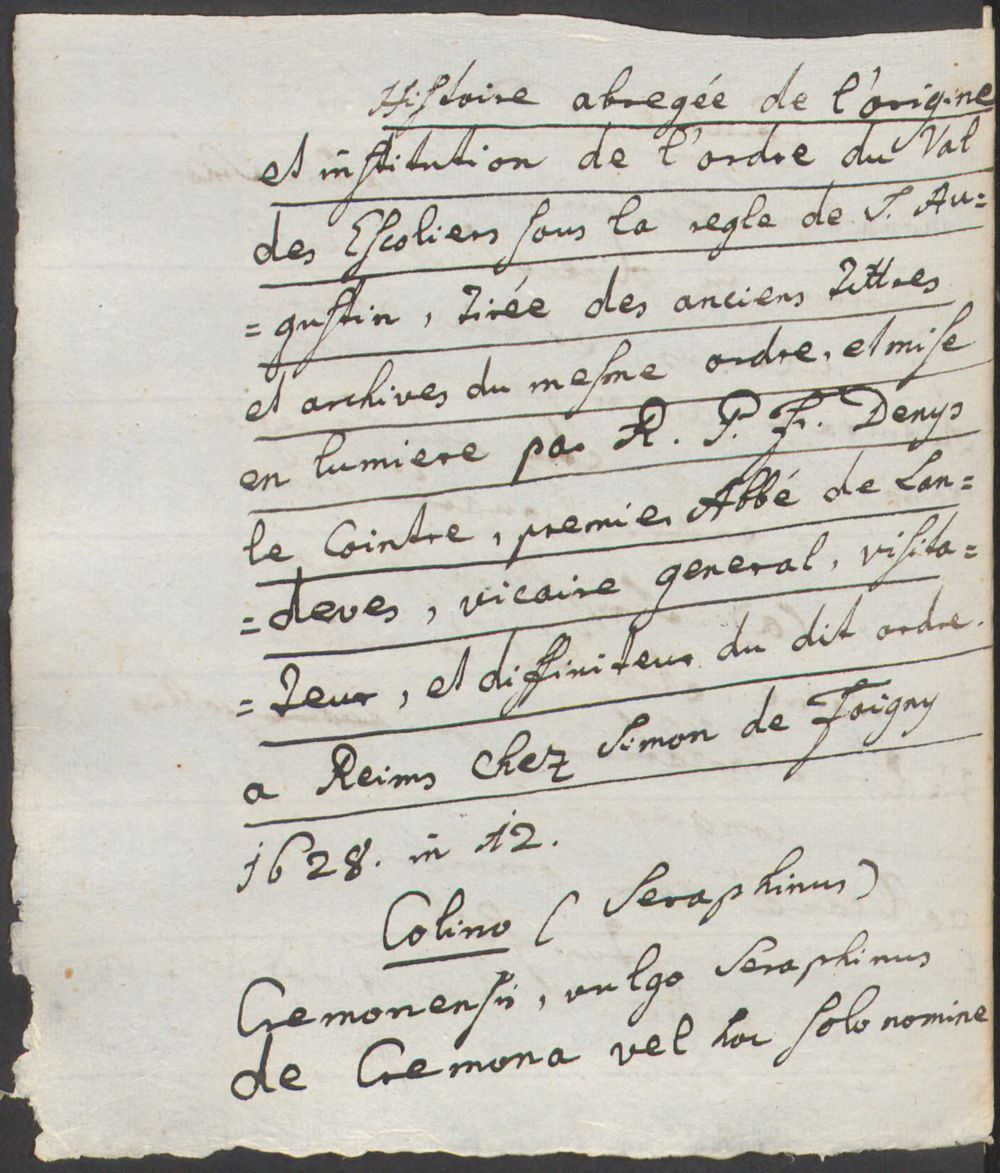 Histoire abregée de l'origine
et institution de l'ordre du Val
des Escoliers sous la regle de S. Au=
=gustin, tirée des anciens tittres
et archives du mesme ordre, et mise
en lumiere par R. P. Fr. Denys
le Cointre, premier Abbé de Lan=
=deves, vicaire general, visita=
=teur, et diffiniteur du dit ordre.
a Reims chez Simon de Foigny
1628. in 12.
Colino (Seraphinus)
Cremonensis, vulgo Seraphinus
de Cremona vel hoc solo nomine